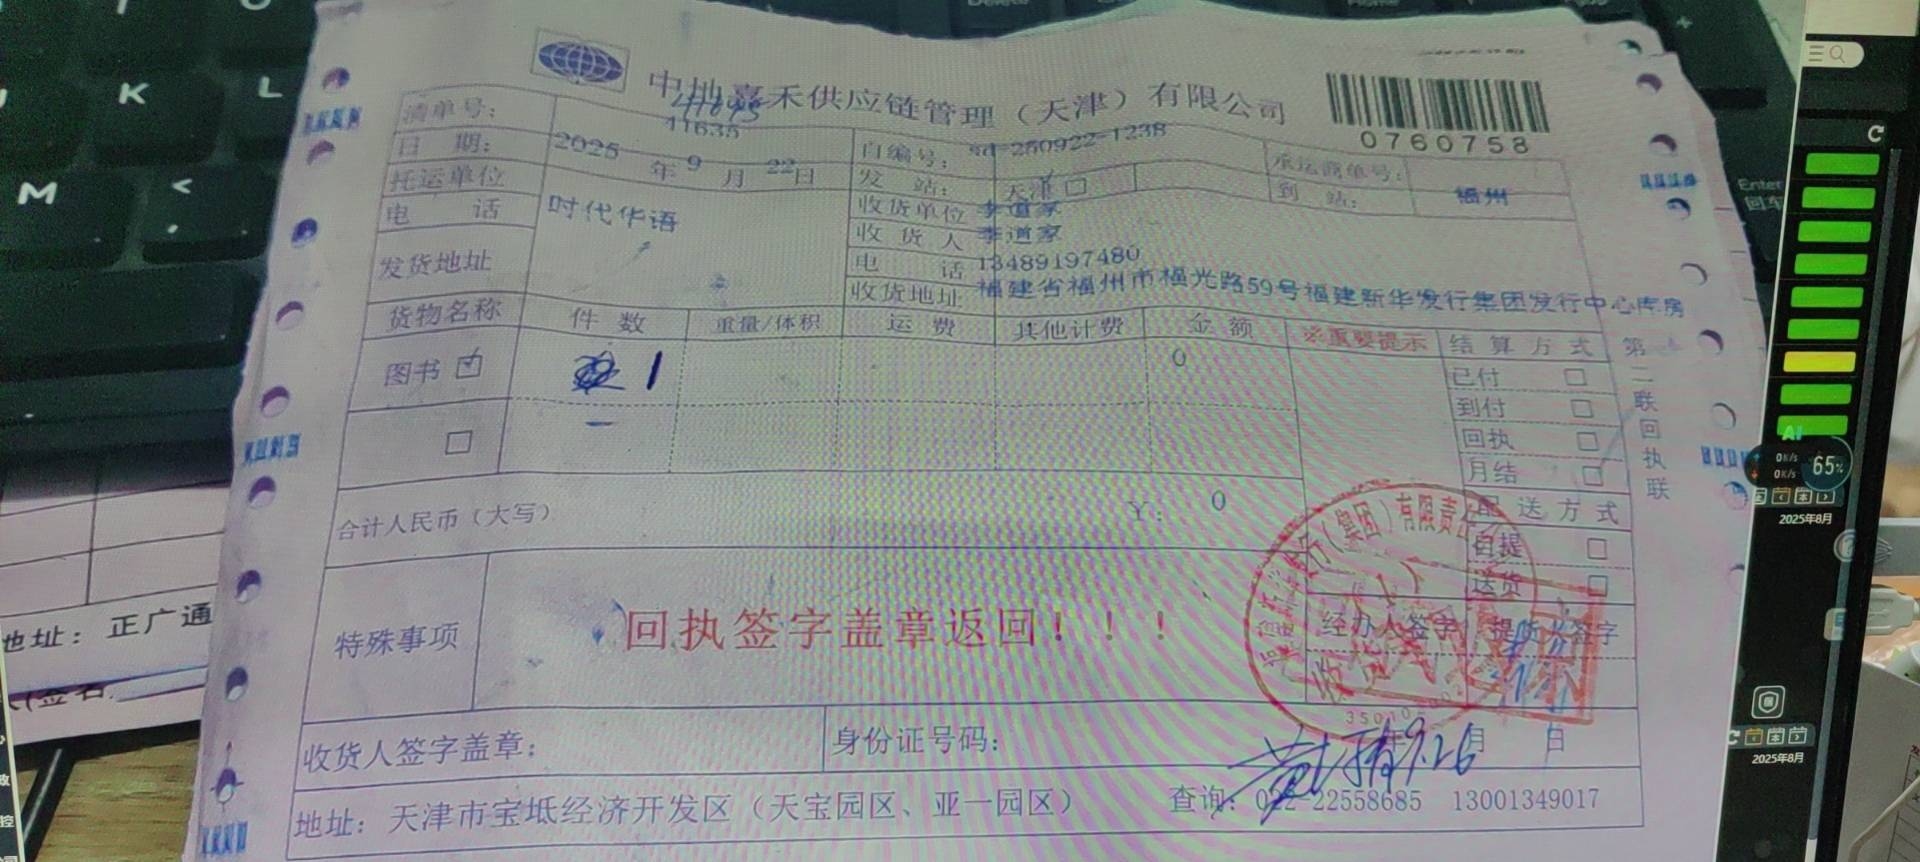 中地嘉禾供应链管理（天津）有限公司
0760758
清单号：
11635
自编号：
250922-1238
承运商单号：
日 期：
2025 年 9 月 22 日
发 站：
天津 □
到 站：
福州
托运单位
时代华语
收货单位
李道家
电 话
收 货 人
李道家
电 话
13489197480
发货地址
收货地址
福建省福州市福光路59号福建新华发行集团发行中心库房
货物名称
件 数
重量/体积
运 费
其他计费
金 额
※重要提示
结 算 方 式
图书 ☑
1
0
已付 □
到付 □
回执 □
月结 □
第二联 回执联
合计人民币（大写）
¥：
0
配 送 方 式
自提 □
送货 □
特殊事项
回执签字盖章返回！！！
经办人签字
提货人签字
（集团）有限责任
收货
收货人签字盖章：
身份证号码：
月 日
9.26
地址：天津市宝坻经济开发区（天宝园区、亚一园区）
查询：022-22558685 13001349017
K
L
M
<
Enter
回车
地址：正广通
65%
0K/s
0K/s
AI
2025年8月
2025年8月